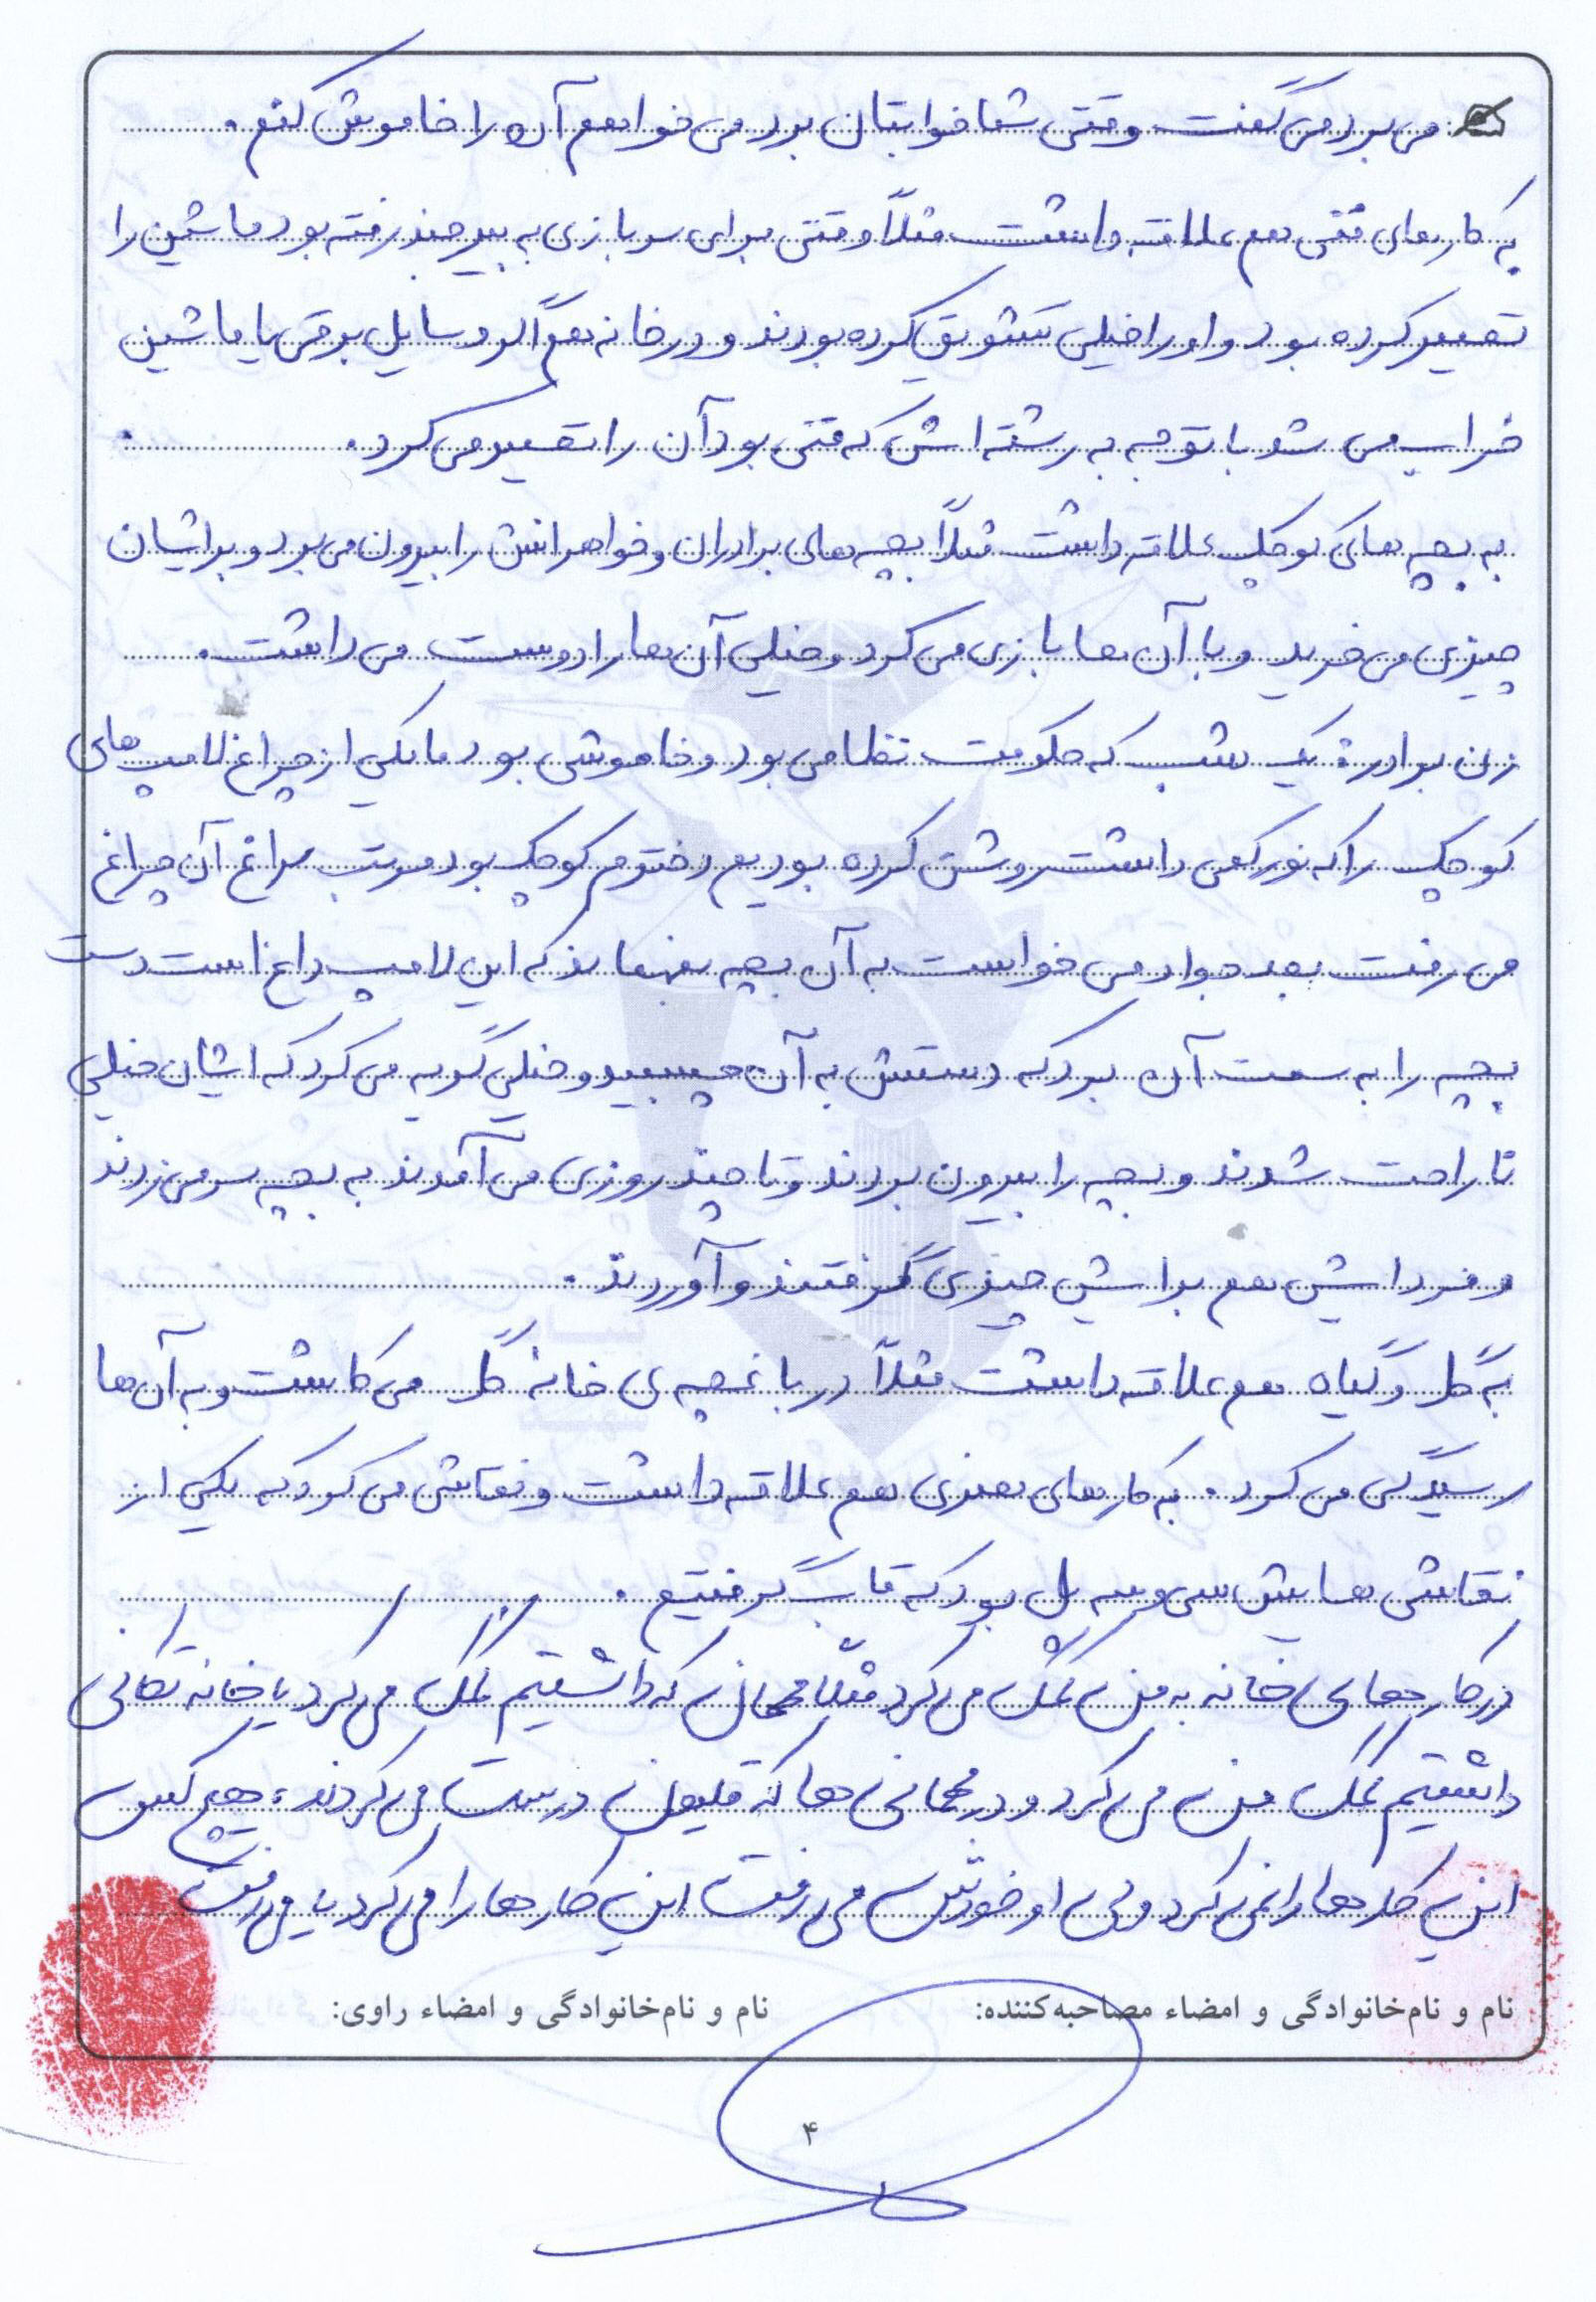 می برد می گفت وقتی شما خوابتان برد می خواهم آن را خاموش کنم.
به کارهای فنی هم علاقه داشت مثلاً وقتی برای سربازی به بیرجند رفته بود ماشین را
تعمیر کرده بود و او را خیلی تشویق کرده بودند و در خانه هم اگر وسایل برقی یا ماشین
خراب می شد با توجه به رشته اش که فنی بود آن را تعمیر می کرد.
به بچه های کوچک علاقه داشت مثلاً بچه های برادران و خواهرانش را بیرون می برد و برایشان
چیزی می خرید و با آن ها بازی می کرد و خیلی آن ها را دوست می داشت.
زن برادر: یک شب که حکومت نظامی بود و خاموشی بود ما یکی از چراغ لامپ های
کوچک را که نور کمی داشت روشن کرده بودیم دخترم کوچک بود مرتب سراغ آن چراغ
می رفت بعد جواد می خواست به آن بچه بفهماند که این لامپ داغ است دست
بچه را به سمت آن برد که دستش به آن چسبید و خیلی گریه می کرد که ایشان خیلی
ناراحت شدند و بچه را بیرون بردند و تا چند روزی می آمدند به بچه سر می زدند
و فردایش هم برایش چیزی گرفتند و آوردند.
به گل و گیاه هم علاقه داشت مثلاً در باغچه ی خانه گل می کاشت و به آن ها
رسیدگی می کرد. به کارهای هنری هم علاقه داشت و نقاشی می کرد که یکی از
نقاشی هایش سی و سه پل بود که قاب گرفتیم.
در کارهای خانه به من کمک می کرد مثلاً مهمان که داشتیم کمک می کرد یا خانه تکانی
داشتیم کمک من می کرد و در مهمانی ها که قلیون درست می کردند، هیچ کس
این کارها را نمی کرد ولی او خودش می رفت این کارها را می کرد یا می رفت
نام و نام‌خانوادگی و امضاء مصاحبه‌کننده: نام و نام‌خانوادگی و امضاء راوی:
۴